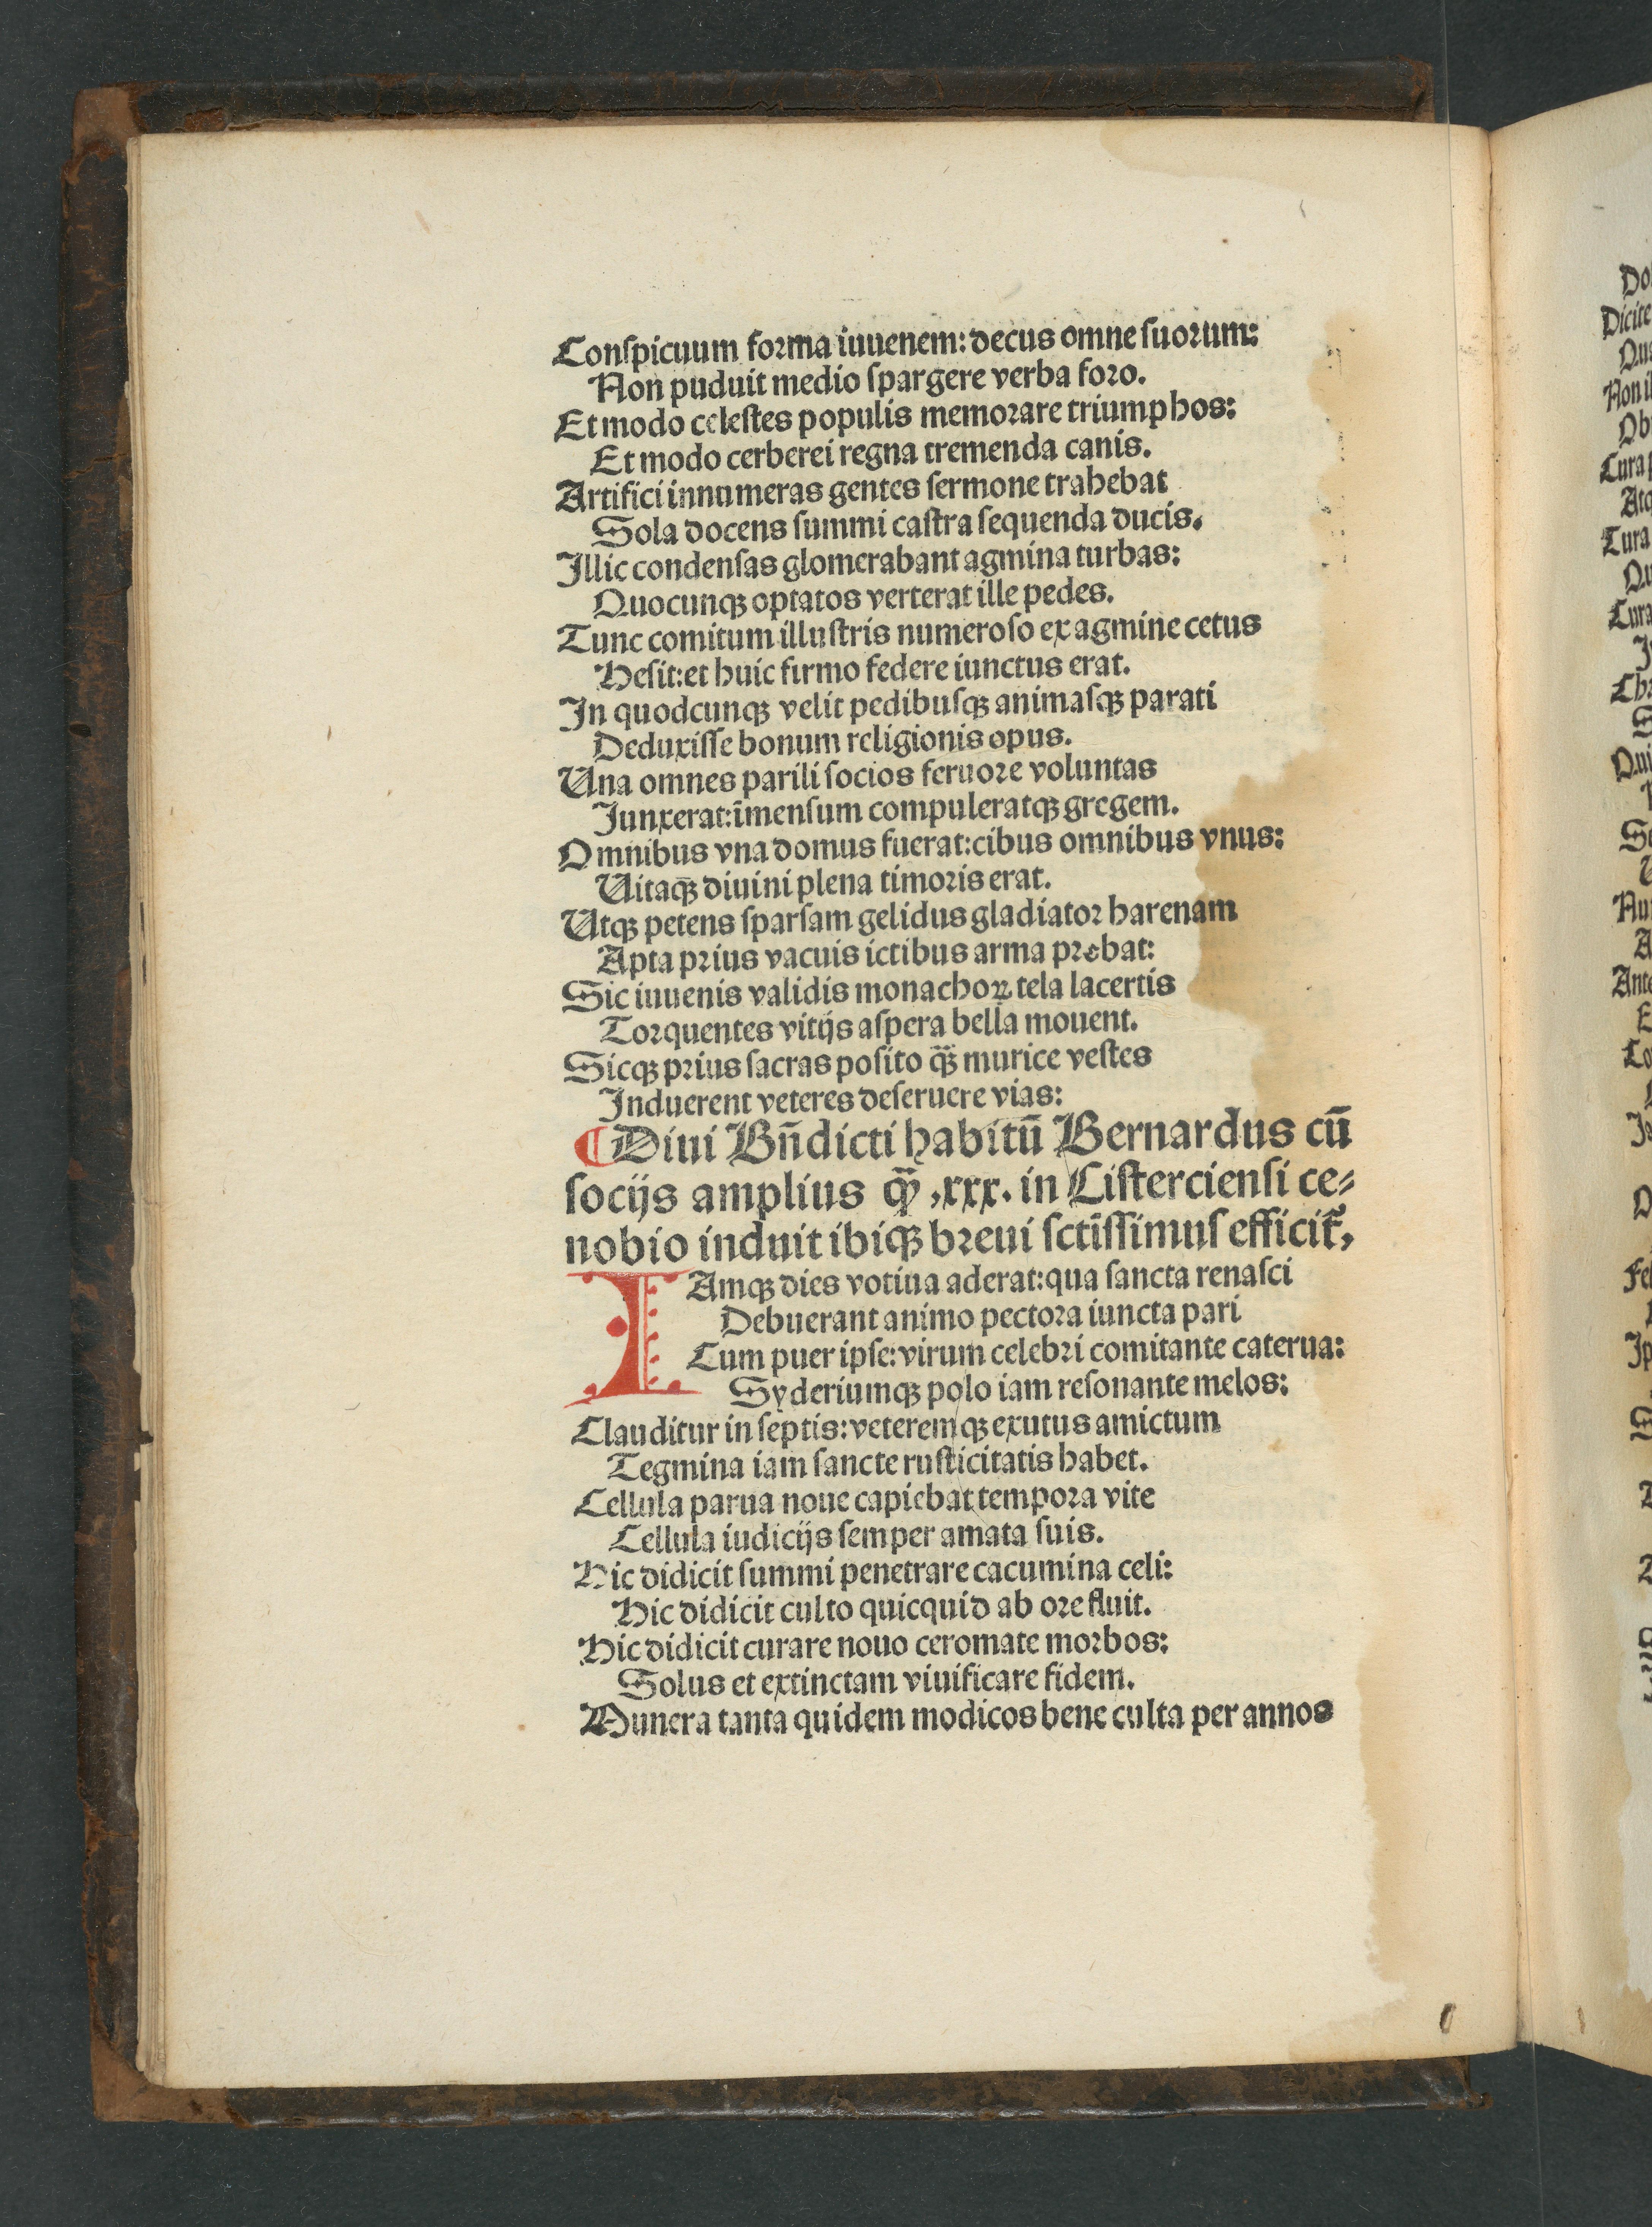 Conſpicuum forma iuuenem: decus omne ſuorum:
Non puduit medio ſpargere verba foro.
Et modo celeſtes populis memorare triumphos:
Et modo cerberei regna tremenda canis.
Artifici innumeras gentes ſermone trahebat
Sola docens ſummi caſtra ſequenda ducis.
Illic condenſas glomerabant agmina turbas:
Quocunqꝫ optatos verterat ille pedes.
Tunc comitum illuſtris numeroſo ex agmine cetus
Heſit: et huic firmo federe iunctus erat.
In quodcunqꝫ velit pedibuſqꝫ animaſqꝫ parati
Deduxiſſe bonum religionis opus.
Una omnes parili ſocios feruore voluntas
Junxerat: īmenſum compuleratqꝫ gregem.
Omnibus vna domus fuerat: cibus omnibus vnus:
Uitaqꝫ̄ diuini plena timoris erat.
Utqꝫ petens ſparſam gelidus gladiator harenam
Apta prius vacuis ictibus arma prebat:
Sic iuuenis validis monachoꝝ tela lacertis
Torquentes vitijs aſpera bella mouent.
Sicqꝫ prius ſacras poſito qꝫ̄ murice veſtes
Induerent veteres deſeruere vias:
¶ Diui Bn̄dicti habitū Bernardus cū
ſocijs amplius qꝫ̄ .xxx. in Ciſtercienſi ce⸗
nobio induit ibiqꝫ breui ſctiſ̄ſimuſ efficit᷑,
IAmqꝫ dies votiua aderat: qua ſancta renaſci
Debuerant animo pectora iuncta pari
Cum puer ipſe: virum celebri comitante caterua:
Syderiumqꝫ polo iam reſonante melos:
Clauditur in ſeptis: veteremqꝫ exutus amictum
Tegmina iam ſancte ruſticitatis habet.
Cellula parua noue capiebat tempora vite
Cellula iudicijs ſemper amata ſuis.
Hic didicit ſummi penetrare cacumina celi:
Hic didicit culto quicquid ab ore fluit.
Hic didicit curare nouo ceromate morbos:
Solus et extinctam viuificare fidem.
Munera tanta quidem modicos bene culta per annos